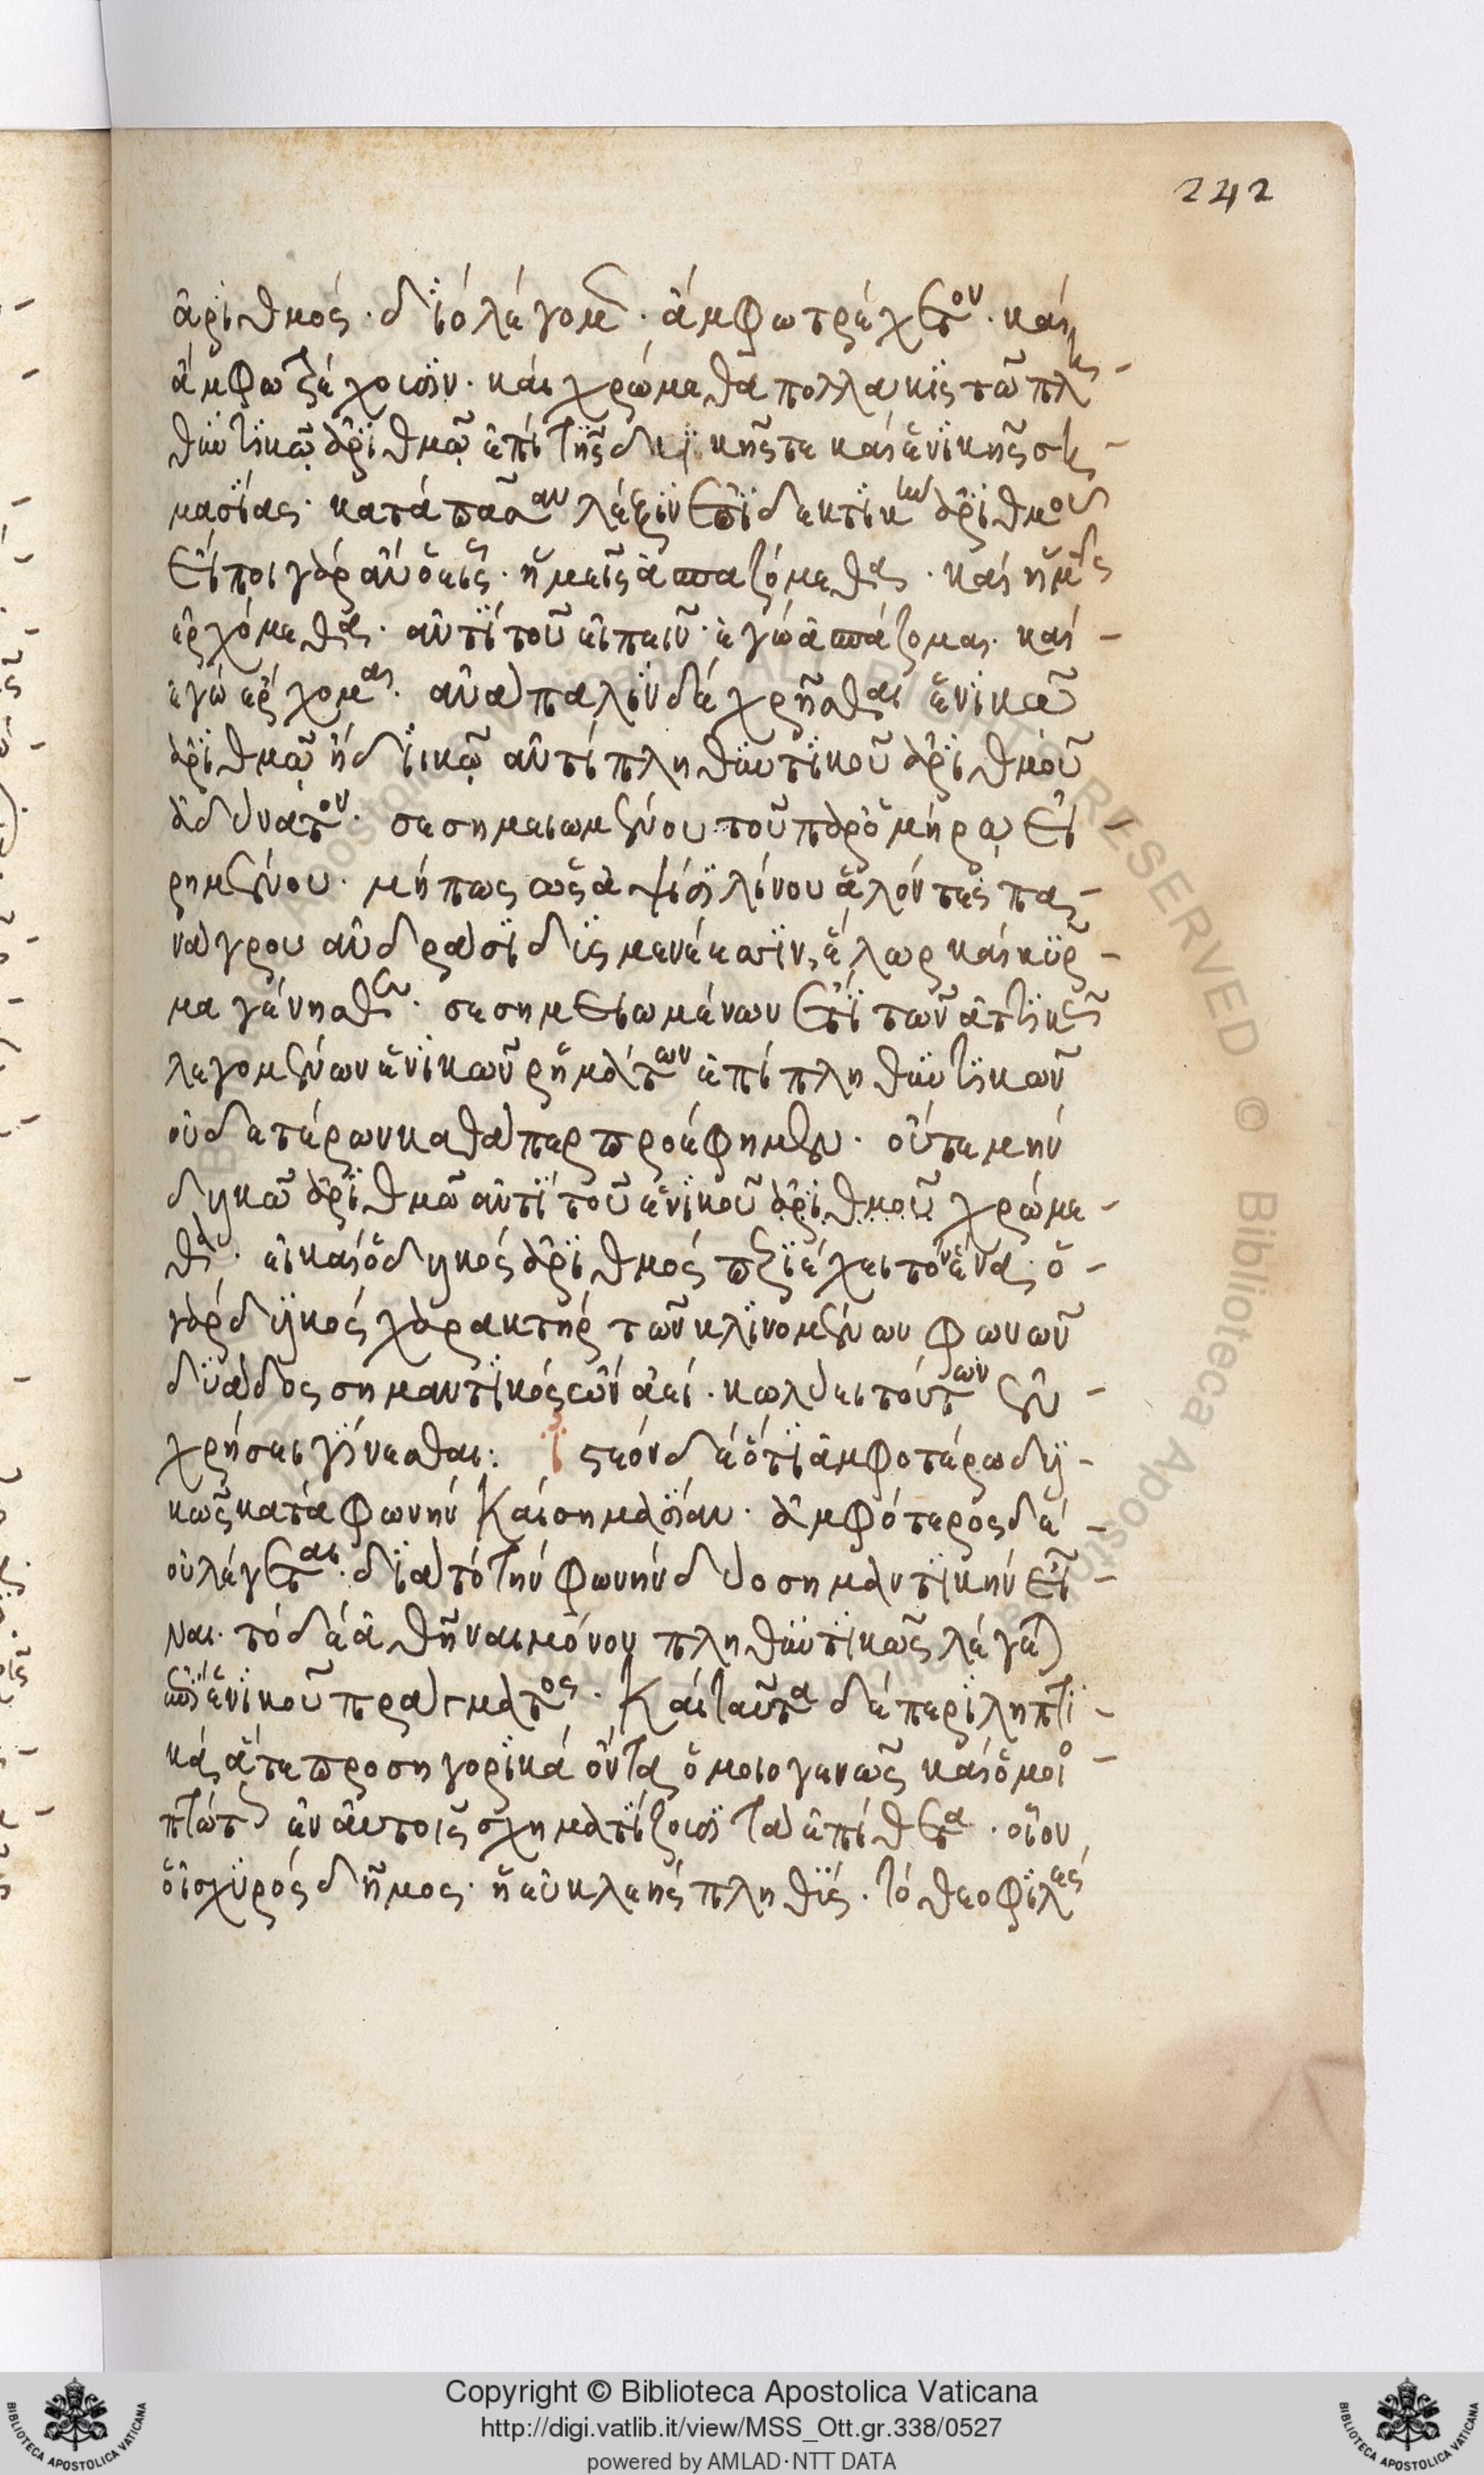 242
ἀριθμός· διὸ λέγομεν· ἄμφω τρέχετον· καὶ
ἄμφω τρέχουσιν· καὶ χρώμεθα πολλάκις τῶ πλη
θυντικῷ ἀριθμῷ ἐπὶ τῆς δυϊκῆς τε καὶ ἑνικῆς ση
μασίας· κατὰ πᾶσαν λέξιν ἐπιδεκτικὴν ἀριθμοῦ
εἴποι γὰρ ἂν ὁ εἷς· ἡμεῖς ἀσπαζόμεθα· καὶ ἡμεῖς
ἐρχόμεθα· ἀντὶ τοῦ εἰπεῖν· ἐγὼ ἀσπάζομαι· καὶ
ἐγὼ ἔρχομαι· ἀνάπαλιν δὲ χρῆσθαι ἑνικῶ
ἀριθμῷ ἢ δυϊκῷ ἀντὶ πληθυντικοῦ ἀριθμοῦ
ἀδύνατον· σεσημειωμένου τοῦ παρ' ὁμήρῳ εἰ
ρημένου· μήπως ὡς ἀψῖσι λίνου ἁλόντες πα
νάγρου ἀνδράσι δυσμενέεσσιν, ἕλωρ καὶ κύρ
μα γένησθε· σεσημειωμένων ἔτι τῶν ἀττικῶς
λεγομένων ἑνικῶν ῥημάτων ἐπὶ πληθυντικῶν
οὐδετέρων καθάπερ προέφημεν· οὔτε μὴν
δυϊκῶ ἀριθμῶ ἀντὶ τοῦ ἑνικοῦ ἀριθμοῦ χρώμε
θα· εἰ καὶ ὁ δυϊκὸς ἀριθμὸς περιέχει τὸν ἕνα· ὁ
γὰρ δυϊκὸς χαρακτὴρ τῶν κλινομένων φωνῶν
δυάδος σημαντικὸς ὢν ἀεὶ· κωλύει τούτων ἐν
χρήσει γίνεσθαι: ἰστέον δὲ ὅτι ἀμφοτέρω δυϊ
κῶς κατὰ φωνὴν καὶ σημασίαν· ἀμφότερος δὲ
οὐ λέγεται· διὰ τὸ τὴν φωνὴν δύο σημαντικὴν εἶ
ναι· τὸ δὲ ἀθῆναι μόνον πληθυντικῶς λέγεται
ἐπὶ ἑνικοῦ πράγματος· Καὶ ταῦτα δὲ περιληπτι
κὰ ἅτε προσηγορικὰ ὄντα, ὁμοιογενῶς καὶ ὁμοιο
πτώτως ἐν αὐτοῖς σχηματίζουσι τὰ ἐπίθετα· οἷον
ὁ ἰσχυρὸς δῆμος· ἡ εὐκλεὴς πληθύς· τὸ θεοφιλὲς
Copyright © Biblioteca Apostolica Vaticana
http://digi.vatlib.it/view/MSS_Ott.gr.338/0527
powered by AMLAD·NTT DATA